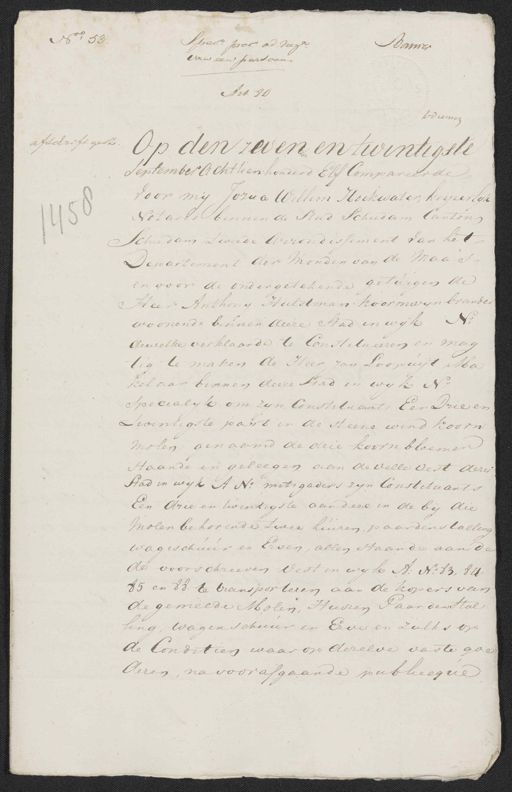 Nº 53
Art 80
afschrift
1458
Op den zeven en twintigste
September Achttienhonderd Elf Compareerde
voor my Jozua Willem Hoekwater, keyzerlyk
Notaris binnen de Stad Schiedam Canton
Schiedam tweede Arrondissement van het
Departement der Monden van de Maas
en voor de ondergetekende getuigen de
Heer Anthony Huldman koornwynbrander
woonende binnen deze Stad in wyk Nº
dewelke verklaarde te Constitueeren en mag
tig te maken de Heer Jan Loopuyt Ma
kelaar binnen deze Stad in wyk Nº
Specialyk om zyn Constituants Een Drie en
Twentigste part in de steene wind koorn
molen, genaamd de drie koornbloemen
staande en geleegen aan de vest dezer
Stad in wyk A Nº mitsgaders zyn Constituants
Een drie en twentigste aandeel in de by die
Molen behorende twee huizen, paardestalling
wageschuur en Erven, allen staande aan de
de voorschreeven Vest in wyk A: Nº 83, 84
85 en 88 te transporteren aan de kopers van
de gemeede Molen, Huizen Paardenstal
ling, wagenschuur en Erve en zulks op
de Conditien waar op dezelve vaste goe
deren, na voorafgaande publieque